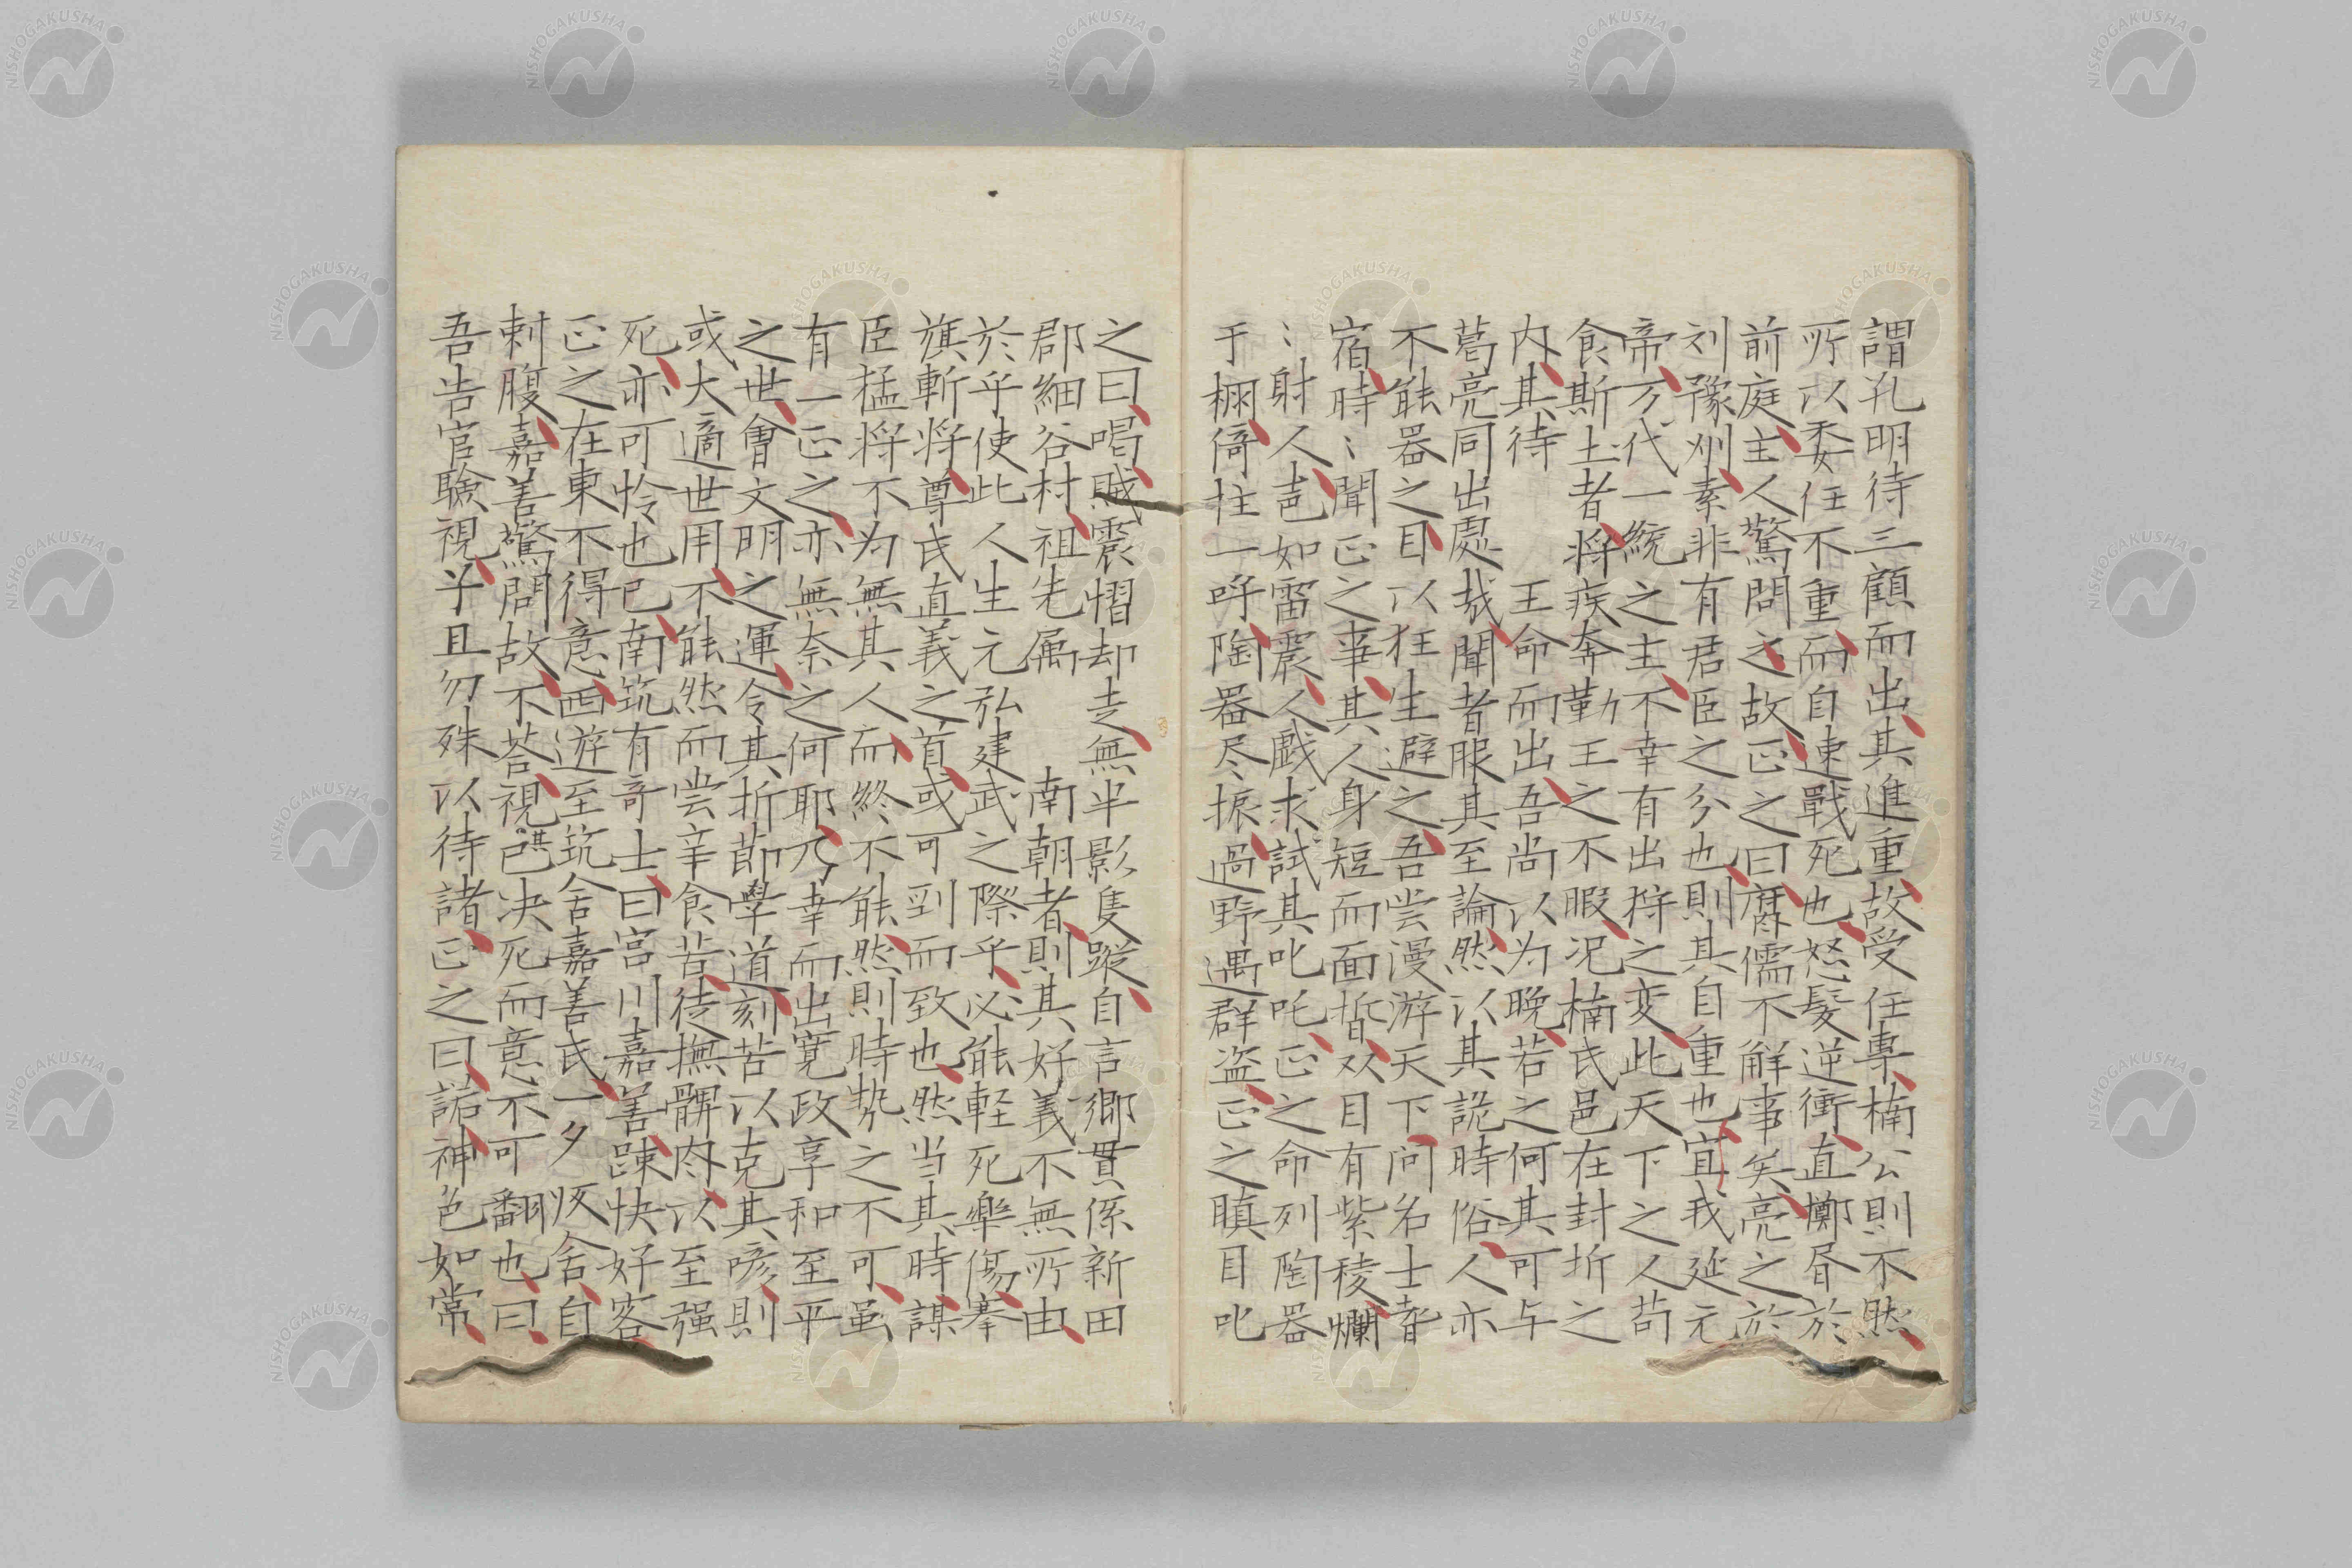 謂孔明待三顧而出其進重故受任專楠公則不然
所以委任不重而自速戰死也怒髮逆衝直擲脣於
前庭主人驚問之故正之曰腐儒不解事矣亮之於
刘豫州素非有君臣之分也則其自重也宜我延元
帝万代一統之主不幸有出狩之変此天下之人苟
食斯土者将疾奔勤王之不暇况楠氏邑在封圻之
内其待　　王命而出吾尚以为晚若之何其可与
葛亮同出處哉聞者服其至論然以其詭時俗人亦
不能器之目以狂生避之吾尝漫游天下问名士耆
宿時〻聞正之事其人身短而面晳双目有紫稜爛
〻射人㐵如雷震人戲求試其叱吒正之命列陶器
于棚倚柱一呼陶器尽振過野遇群盗正之瞋目叱
之曰喝賊震慴却走無半影隻蹤自言郷貫係新田
郡細谷村祖先属　　南朝者則其好義不無所由
於乎使此人生元弘建武之際乎必能軽死樂傷搴
旗斬将尊氏直義之首或可到而致也然当其時謀
臣猛将不为無其人而終不能然則時勢之不可虽
有一正之亦無奈之何耶乃幸而出寛政享和至平
之世會文明之運令其折節學道刻苦以克其嗙則
或大適世用不能然而尝辛食苦徒撫髀肉以至强
死亦可怜也已南筑有奇士曰宮川嘉善踈快好客
正之在東不得意西遊至筑舍嘉善氏一夕仮舍自
刺腹嘉善驚問故不荅視其已决死而意不可翻也曰
吾告官驗視兮且勿殊以待諸正之曰諾神色如常